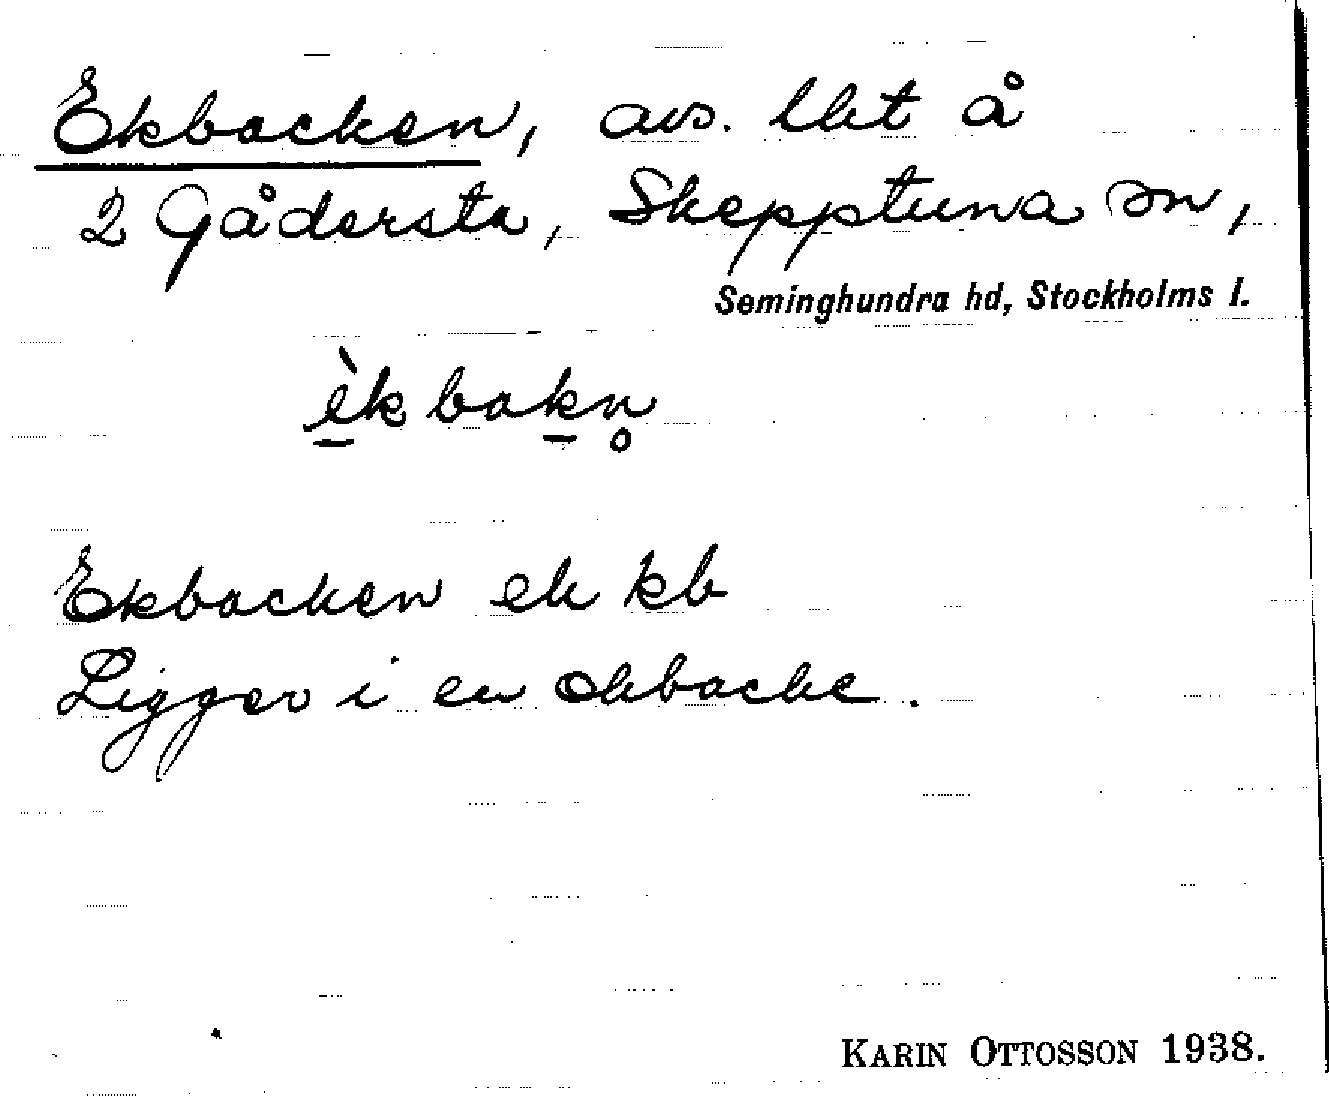 Ekbacken, avs. lht å
2 Gådersta, Skepptuna sn,
Seminghundra hd, Stockholms l.
èk bakn̥
Ekbacken ek kb
Ligger i en ekbacke.
KARIN OTTOSSON 1938.